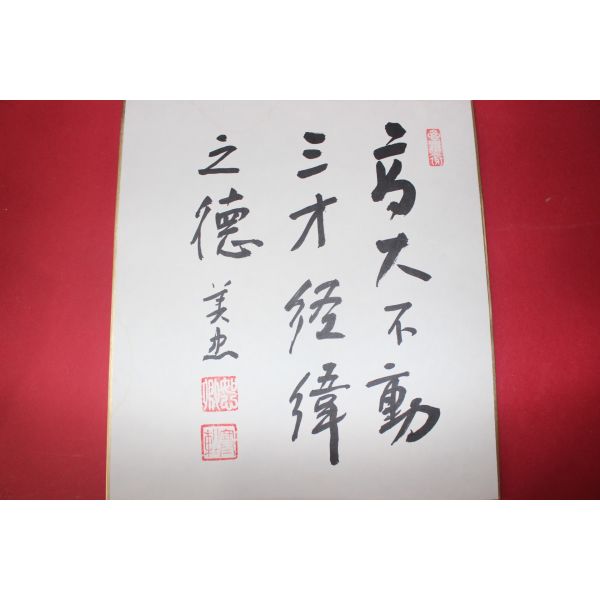 高大不動
三才経緯
之德
美忠